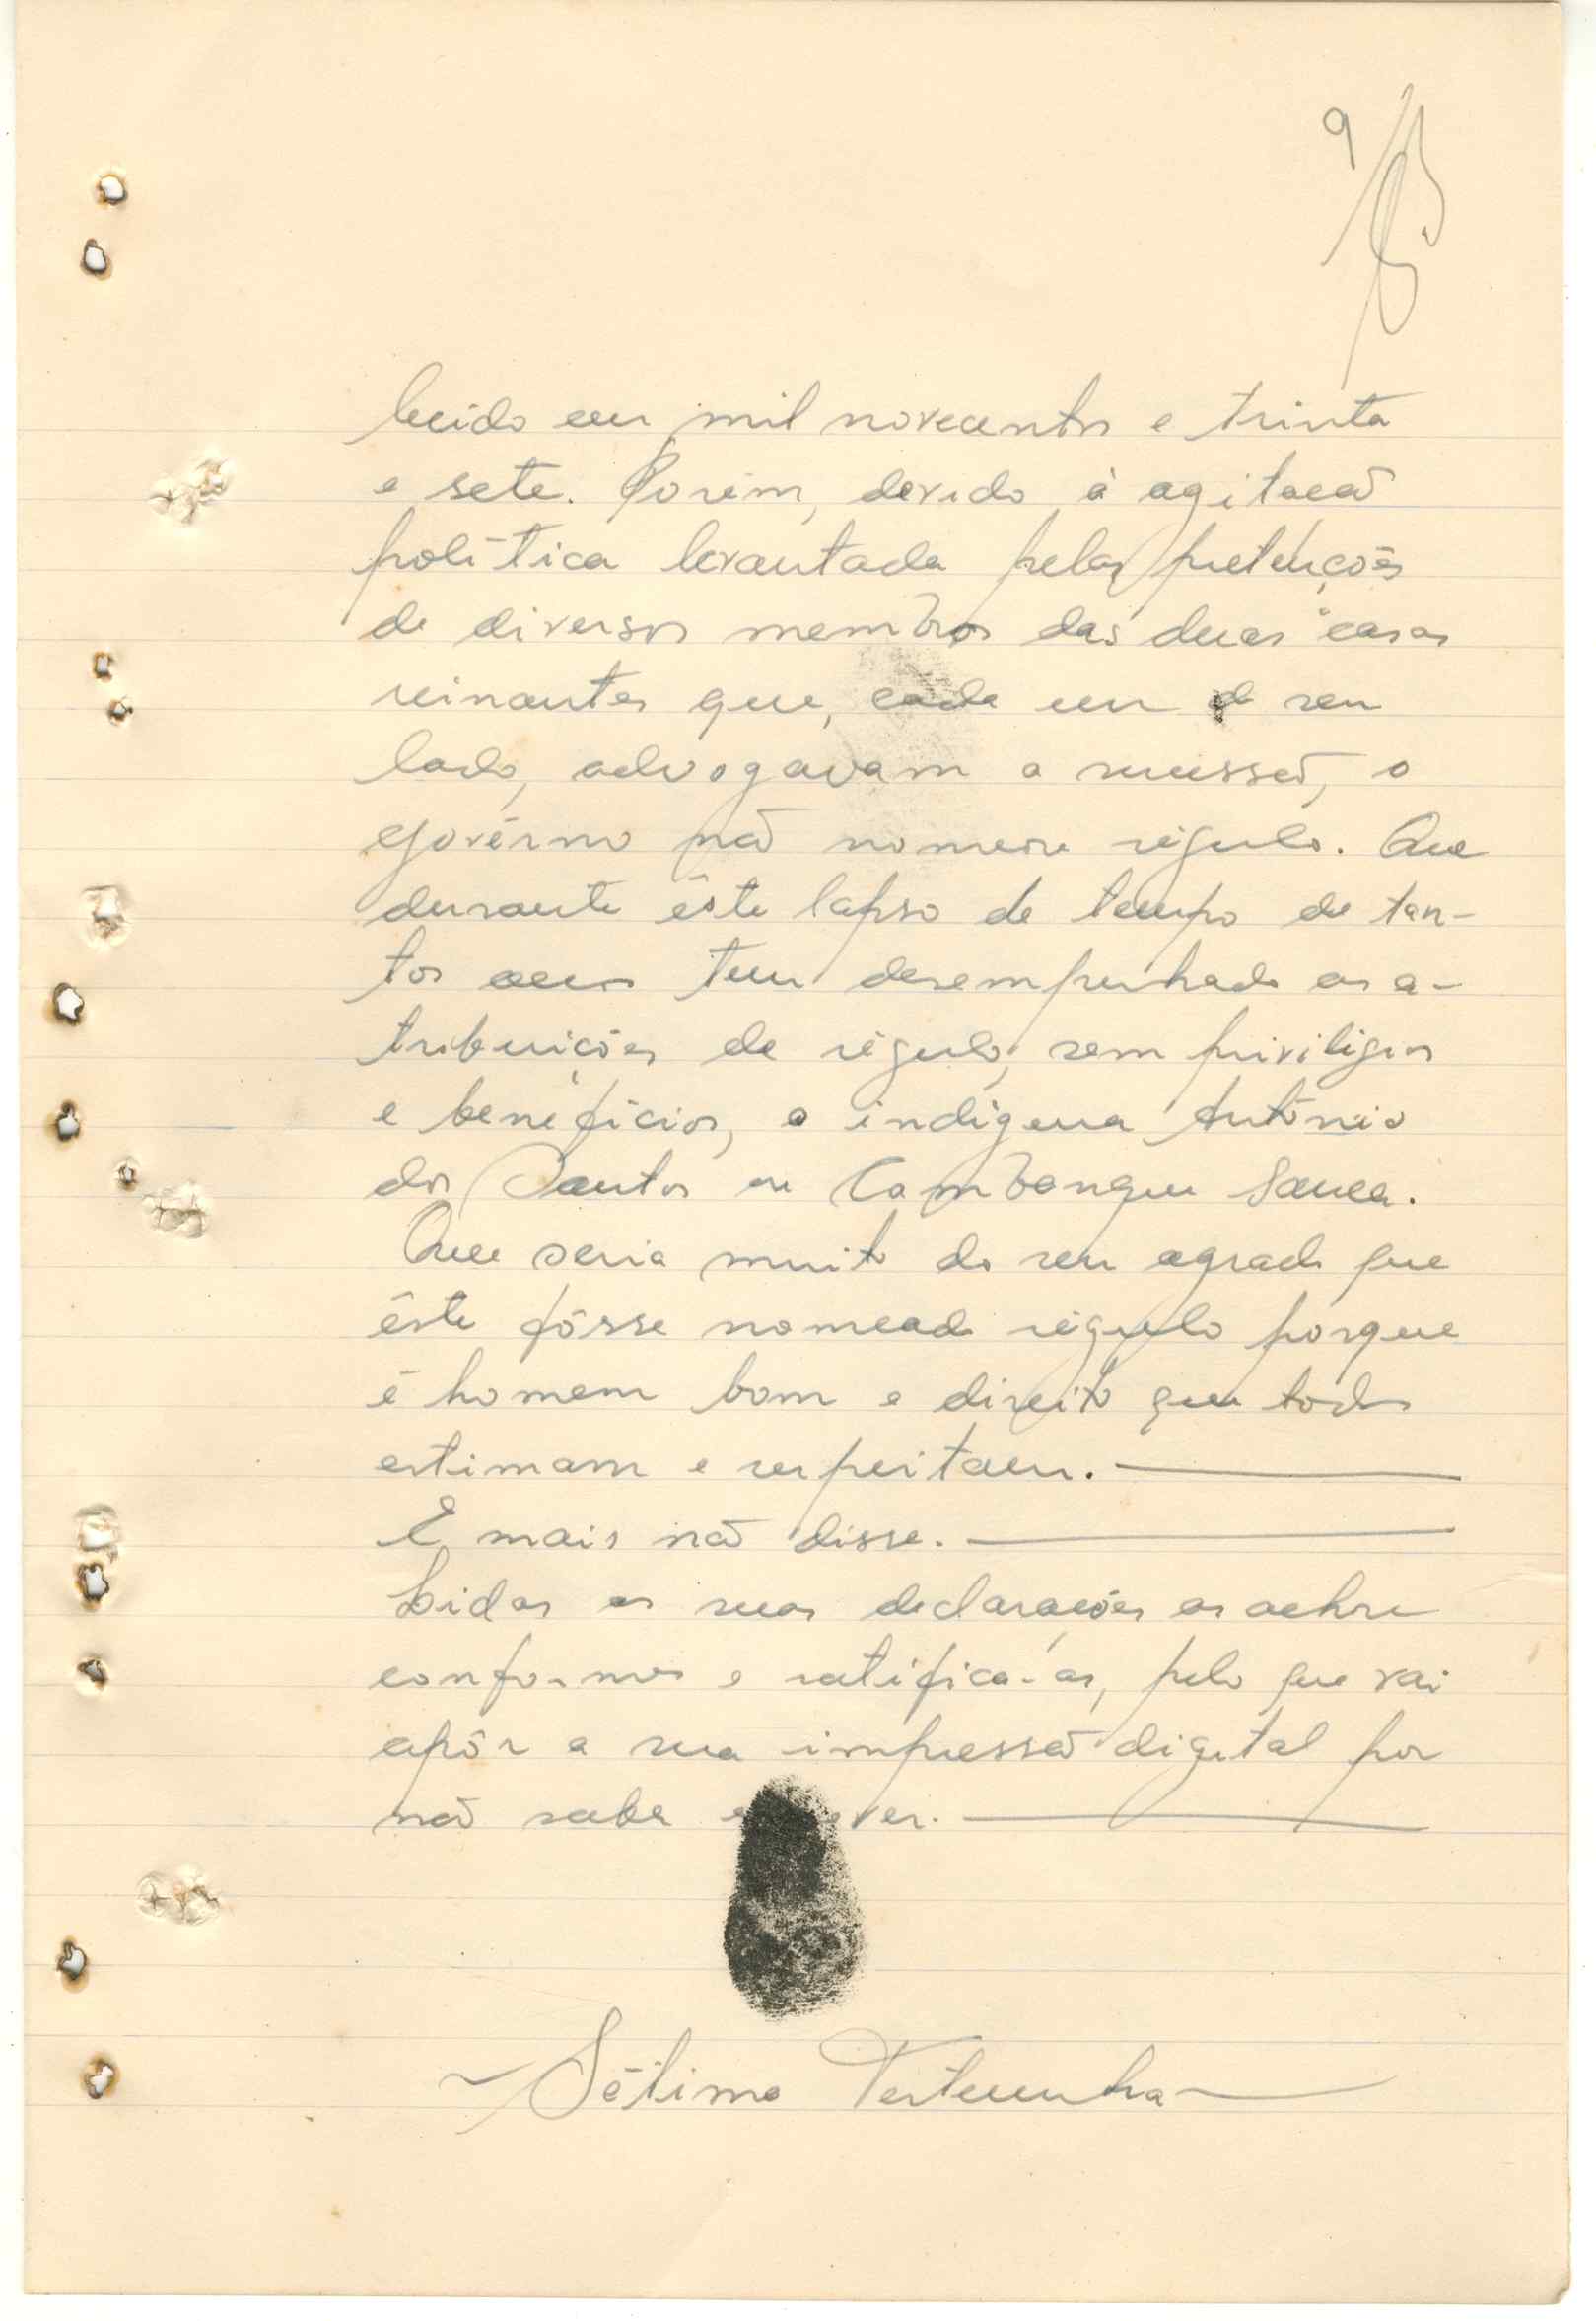 9
lecido em mil novecentos e trinta
e sete. Porém, devido à agitação
política levantada pelas pretenções
de diversos membros das duas casas
reinantes que, cada um de seu
lado, advogavam a sucessão, o
Govêrno não nomeou régulo. Que
durante êste lapso de tempo de tan-
tos anos tem desempenhado as a-
tribuições de régulo, sem priviligios
e benefícios, o indígena António
dos Santos ou Cambanque Sanca.
Que seria muito do seu agrado que
êste fôsse nomeado régulo porque
é homem bom e direito que todos
estimam e respeitam.
E mais não disse.
Lidas as suas declarações as achou
conformes e ratifica-as, pelo que vai
apôr a sua impressão digital por
não saber escrever.
Sétima Testemunha